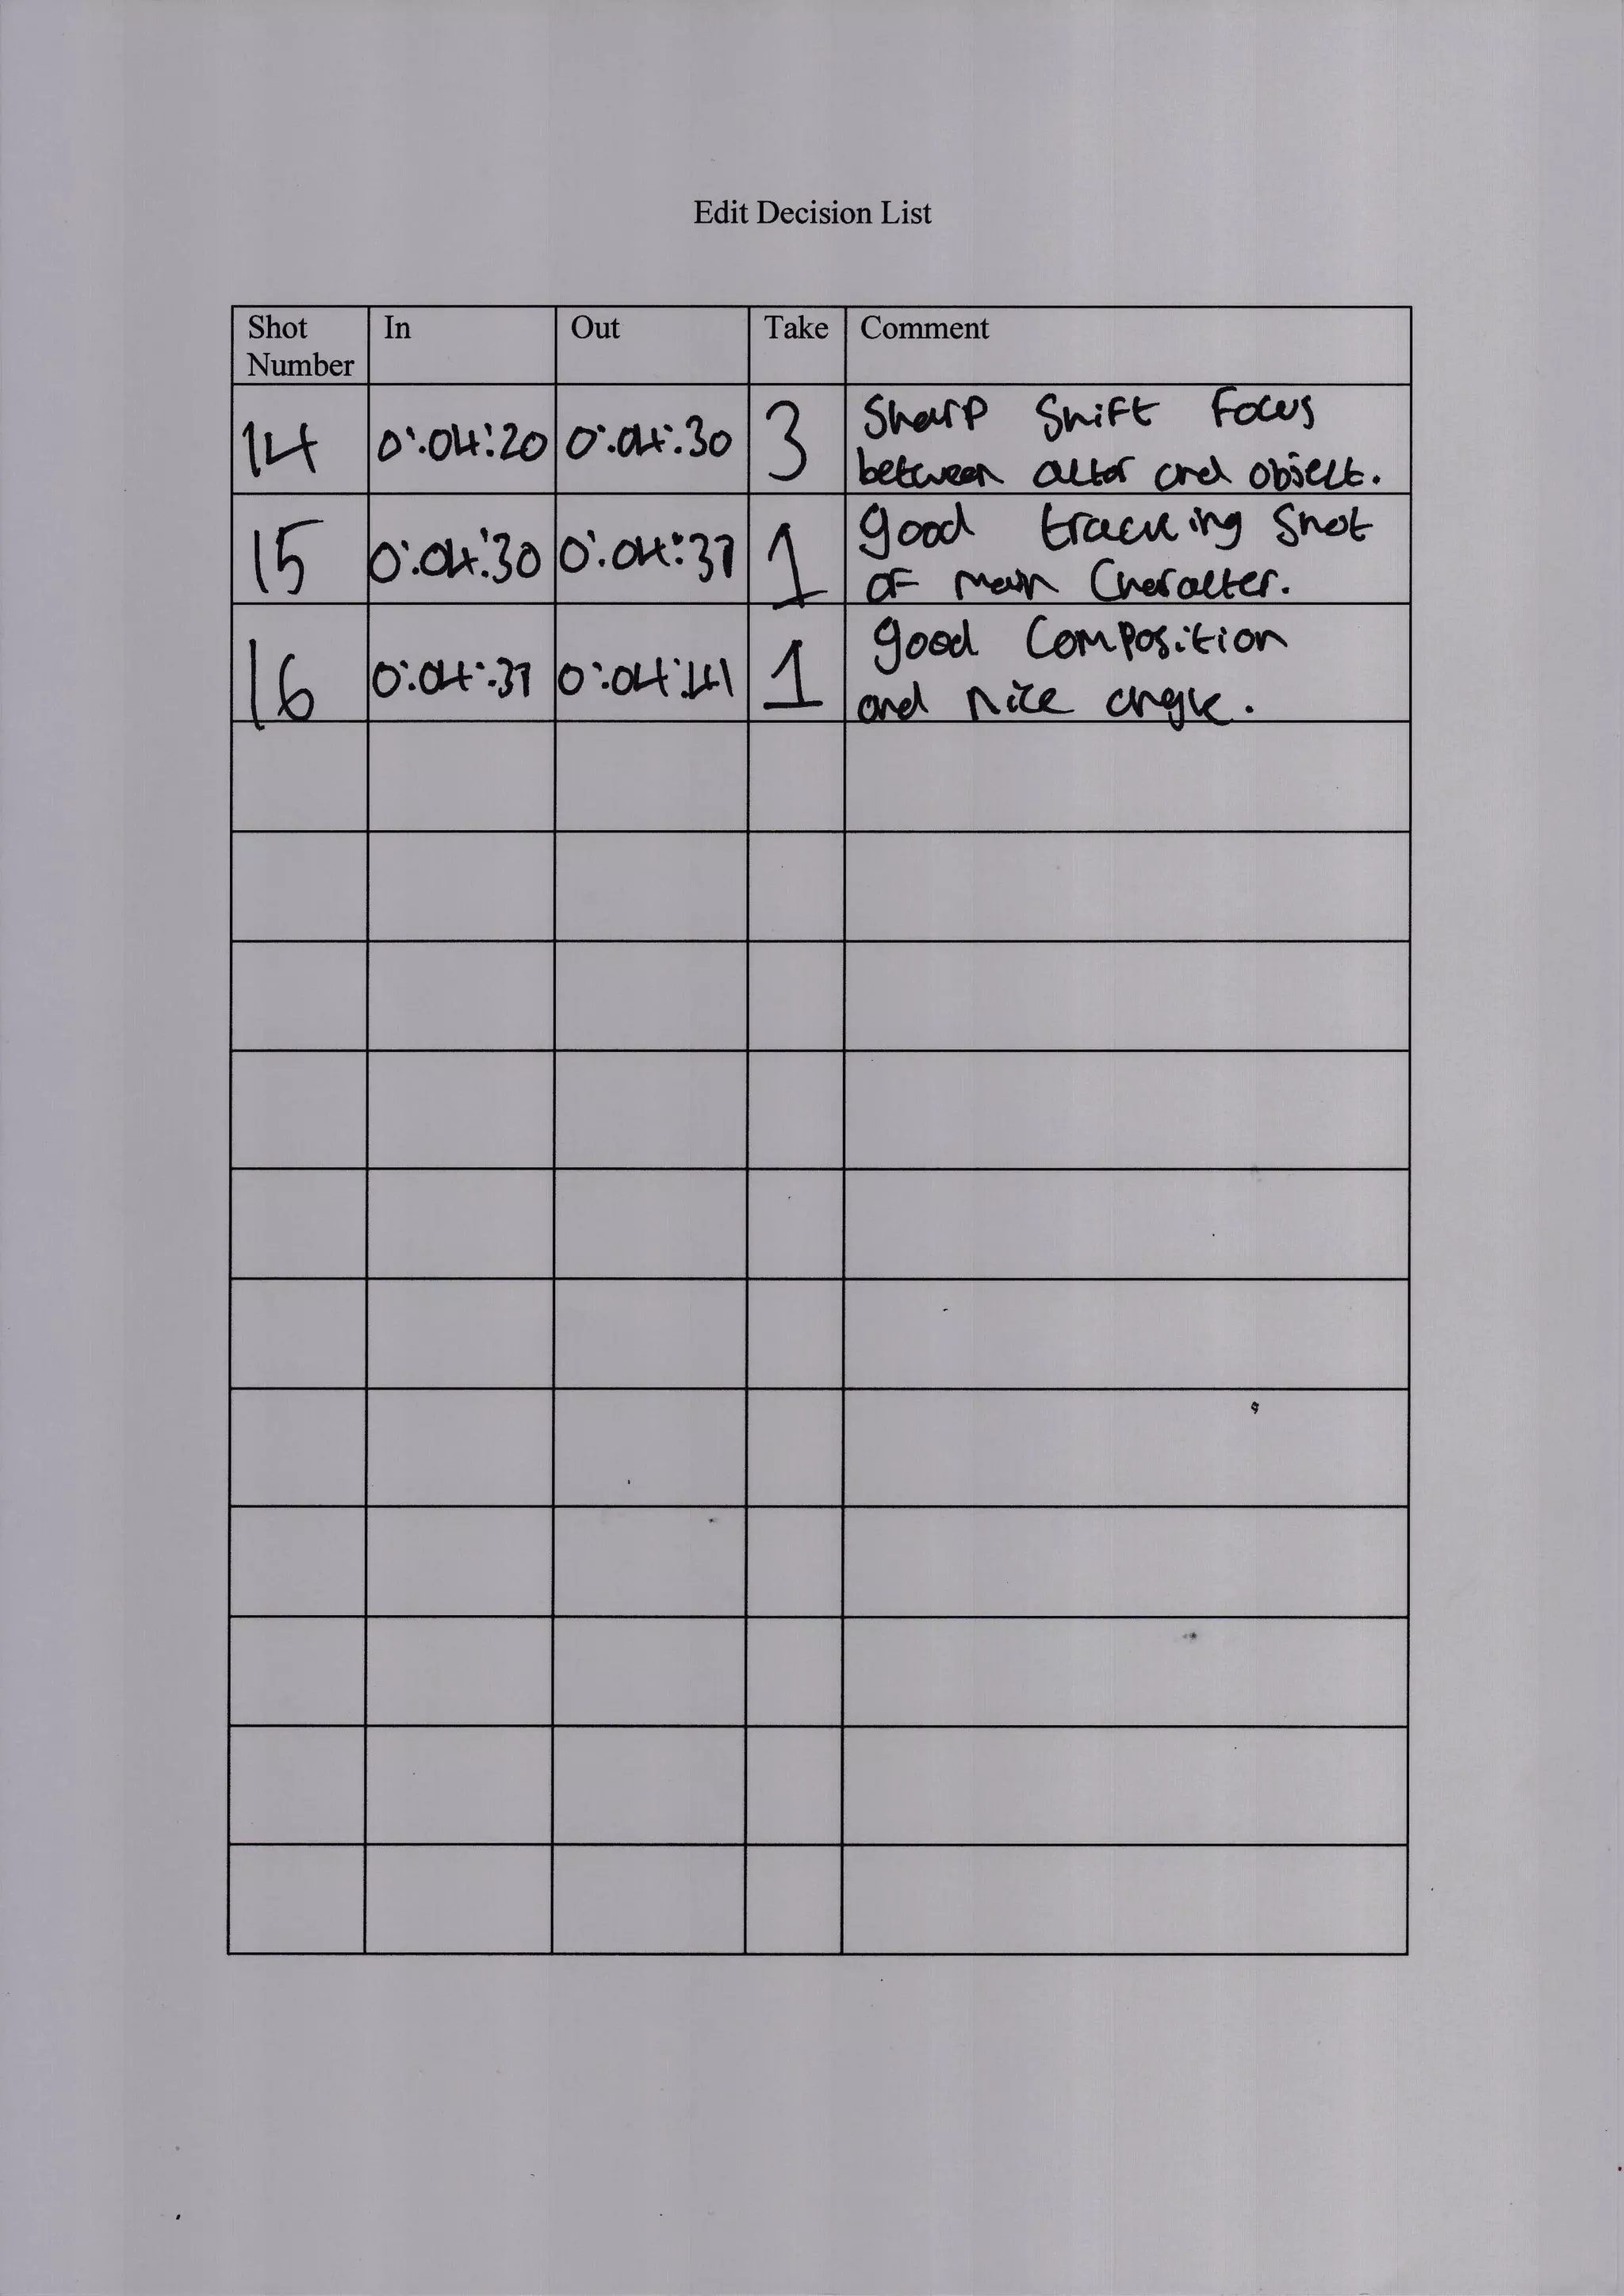 Edit Decision List
Shot Number In Out Take Comment
14 0:04:20 0:04:30 3 Sharp Shift Focus
between actor and object.
15 0:04:30 0:04:37 1 good tracking shot
of main Character.
16 0:04:37 0:04:41 1 good Composition
and nice angle.